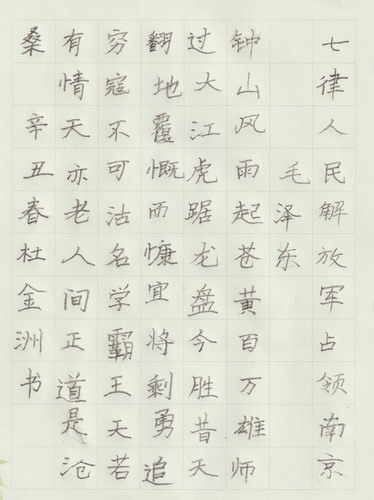 七律人民解放军占领南京
毛泽东
钟山风雨起苍黄百万雄师
过大江虎踞龙盘今胜昔天
翻地覆慨而慷宜将剩勇追
穷寇不可沽名学霸王天若
有情天亦老人间正道是沧
桑 辛丑春杜金洲书